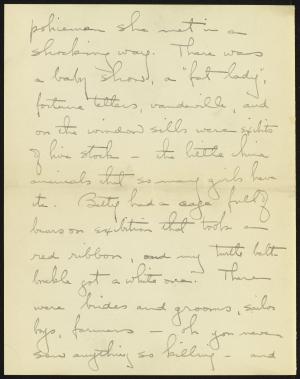 policeman she met in a
shocking way. There was
a baby show, a "fat lady",
fortune tellers, vaudeville, and
on the window sills were exibits
of live stock – the little china
animals that so many girls have
etc. Betty had a cage full of
bears on exibition that took a
red ribbon, and my turtle belt
buckle got a white one. There
were brides and grooms, sailor
boys, farmers – oh you never
saw anything so killing – and